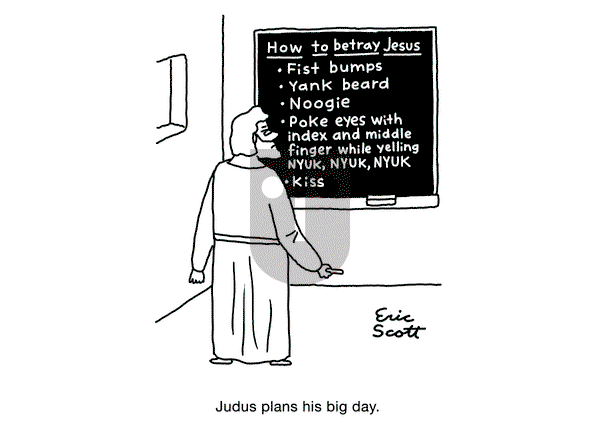 How to betray Jesus
• Fist bumps
• Yank beard
• Noogie
• Poke eyes with
index and middle
finger while yelling
NYUK, NYUK, NYUK
• Kiss
Eric
Scott
Judus plans his big day.